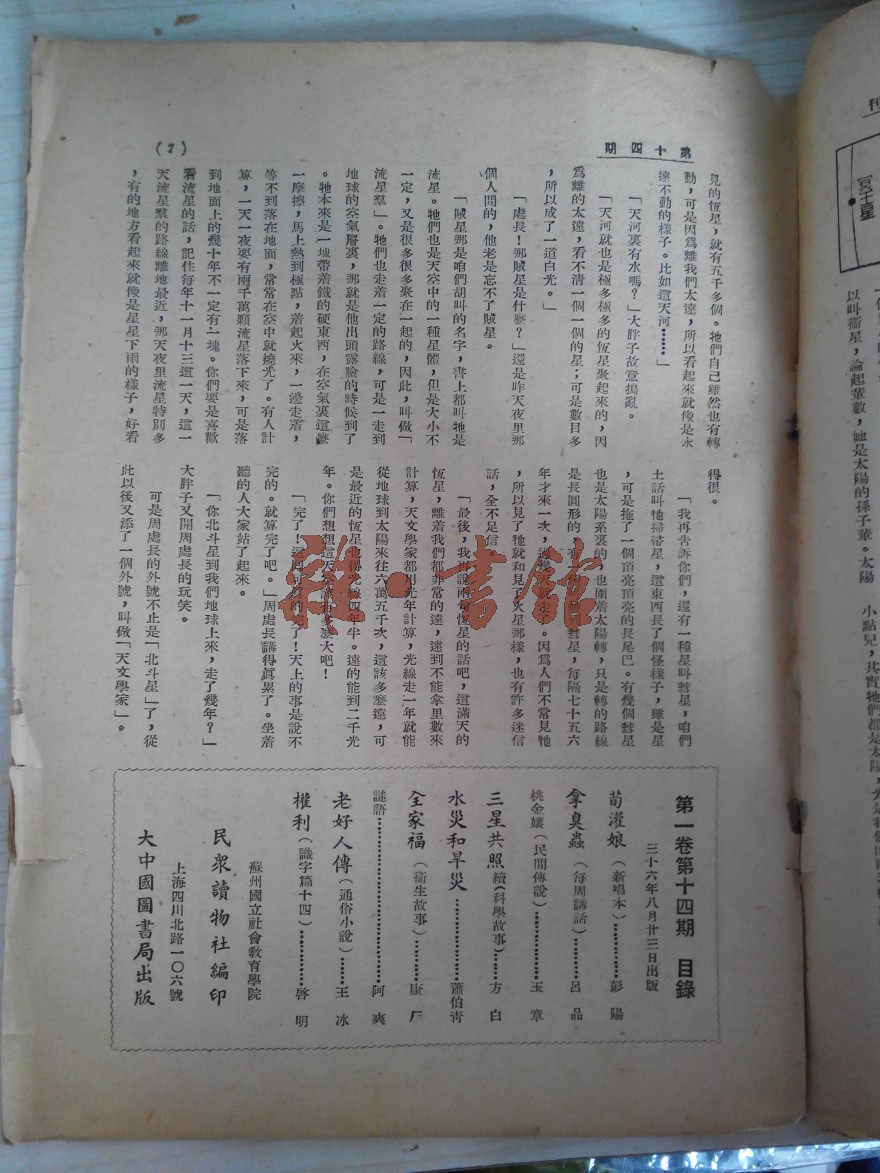 第十四期
(2)
見的恆星，就有五千多個。牠們自己雖然也有轉
動，可是因爲離我們太遠，所以看起來就像是永
遠不動的樣子。比如這天河……」
「天河裏有水嗎？」大胖子故意搗亂。
「天河就也是極多極多的恆星聚起來的，因
爲離的太遠，看不清一個一個的星；可是數目多
，所以成了一道白光。」
「處長！那賊星是什麼？」還是昨天夜里那
個人問的，他老是忘不了賊星。
「賊星那是咱們胡叫的名字，書上都叫牠是
流星。牠們也是天空中的一種星體，但是大小不
一定，又是很多很多聚在一起的，因此，叫做「
流星羣」。牠們也走着一定的路線，可是一走到
地球的空氣層裏，那就是他出頭露臉的時候到了
。牠本來是一塊帶着鐵的硬東西，在空氣裏這麼
一摩擦，馬上熱到極點，着起火來，一邊走着，
等不到落在地面，常常在空中就燒光了。有人計
算，一天一夜要有兩千萬顆流星落下來，可是落
到地面上的幾十年不一定有一塊。你們要是喜歡
看流星的話，記住每年十一月十三這一天，這一
天流星羣的路線離地最近，那天夜里流星特別多
，有的地方看起來就像是星星下雨的樣子，好看
得很。
「我再告訴你們，還有一種星叫彗星，咱們
土話叫牠掃帚星，這東西長了個怪樣子，雖是星
，可是拖了一個頂亮頂亮的長尾巴。有幾個彗星
也是太陽系裏的，也圍着太陽轉，只是轉的路線
是長圓形的，有一個彗星，每隔七十五六
年才來一次，走了。因爲人們不常見牠
，所以見了牠就和見了火星那樣，也有許多迷信
話，全不足信
「最後，我再說兩句恆星的話吧，這滿天的
恆星，離着我們都非常的遠，遠到不能拿里數來
計算，天文學家都用光年計算，光線走一年就能
從地球到太陽來往六萬五千次，這該多麼遠，可
是最近的恆星也得光線四年半。遠的能到二千光
年。你們想想這天多麼大吧！
「完了！這回可真的完了！天上的事是說不
完的。就算完了吧。」周處長講得眞累了。坐着
聽的人大家站了起來。
「你北斗星到我們地球上來，走了幾年？」
大胖子又開周處長的玩笑。
可是周處長的外號不止是「北斗星」了，從
此以後又添了一個外號，叫做「天文學家」。
第一卷第十四期 目錄
三十六年八月廿三日出版
荀灌娘（新唱本）……彭陽
拿臭蟲（每周講話）……呂品
桃金孃（民間傳說）……玉章
三星共照續（科學故事）……方白
水災和旱災……蕭伯青
全家福（衛生故事）……康厂
謎語……阿爽
老好人傳（通俗小說）……王冰
權利（識字篇十四）……啓明
蘇州國立社會教育學院
民衆讀物社編印
上海四川北路一〇六號
大中國圖書局出版
雜·書館
刊
冥王星
以叫衞星，論起輩數，她是太陽的孫子輩。太陽
小點兒，其實牠們都是太陽，